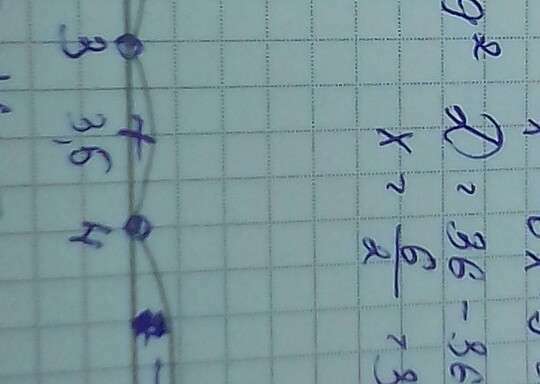 D = 36 - 36
x = 6/2 = 3
3 + 4 -
3,6